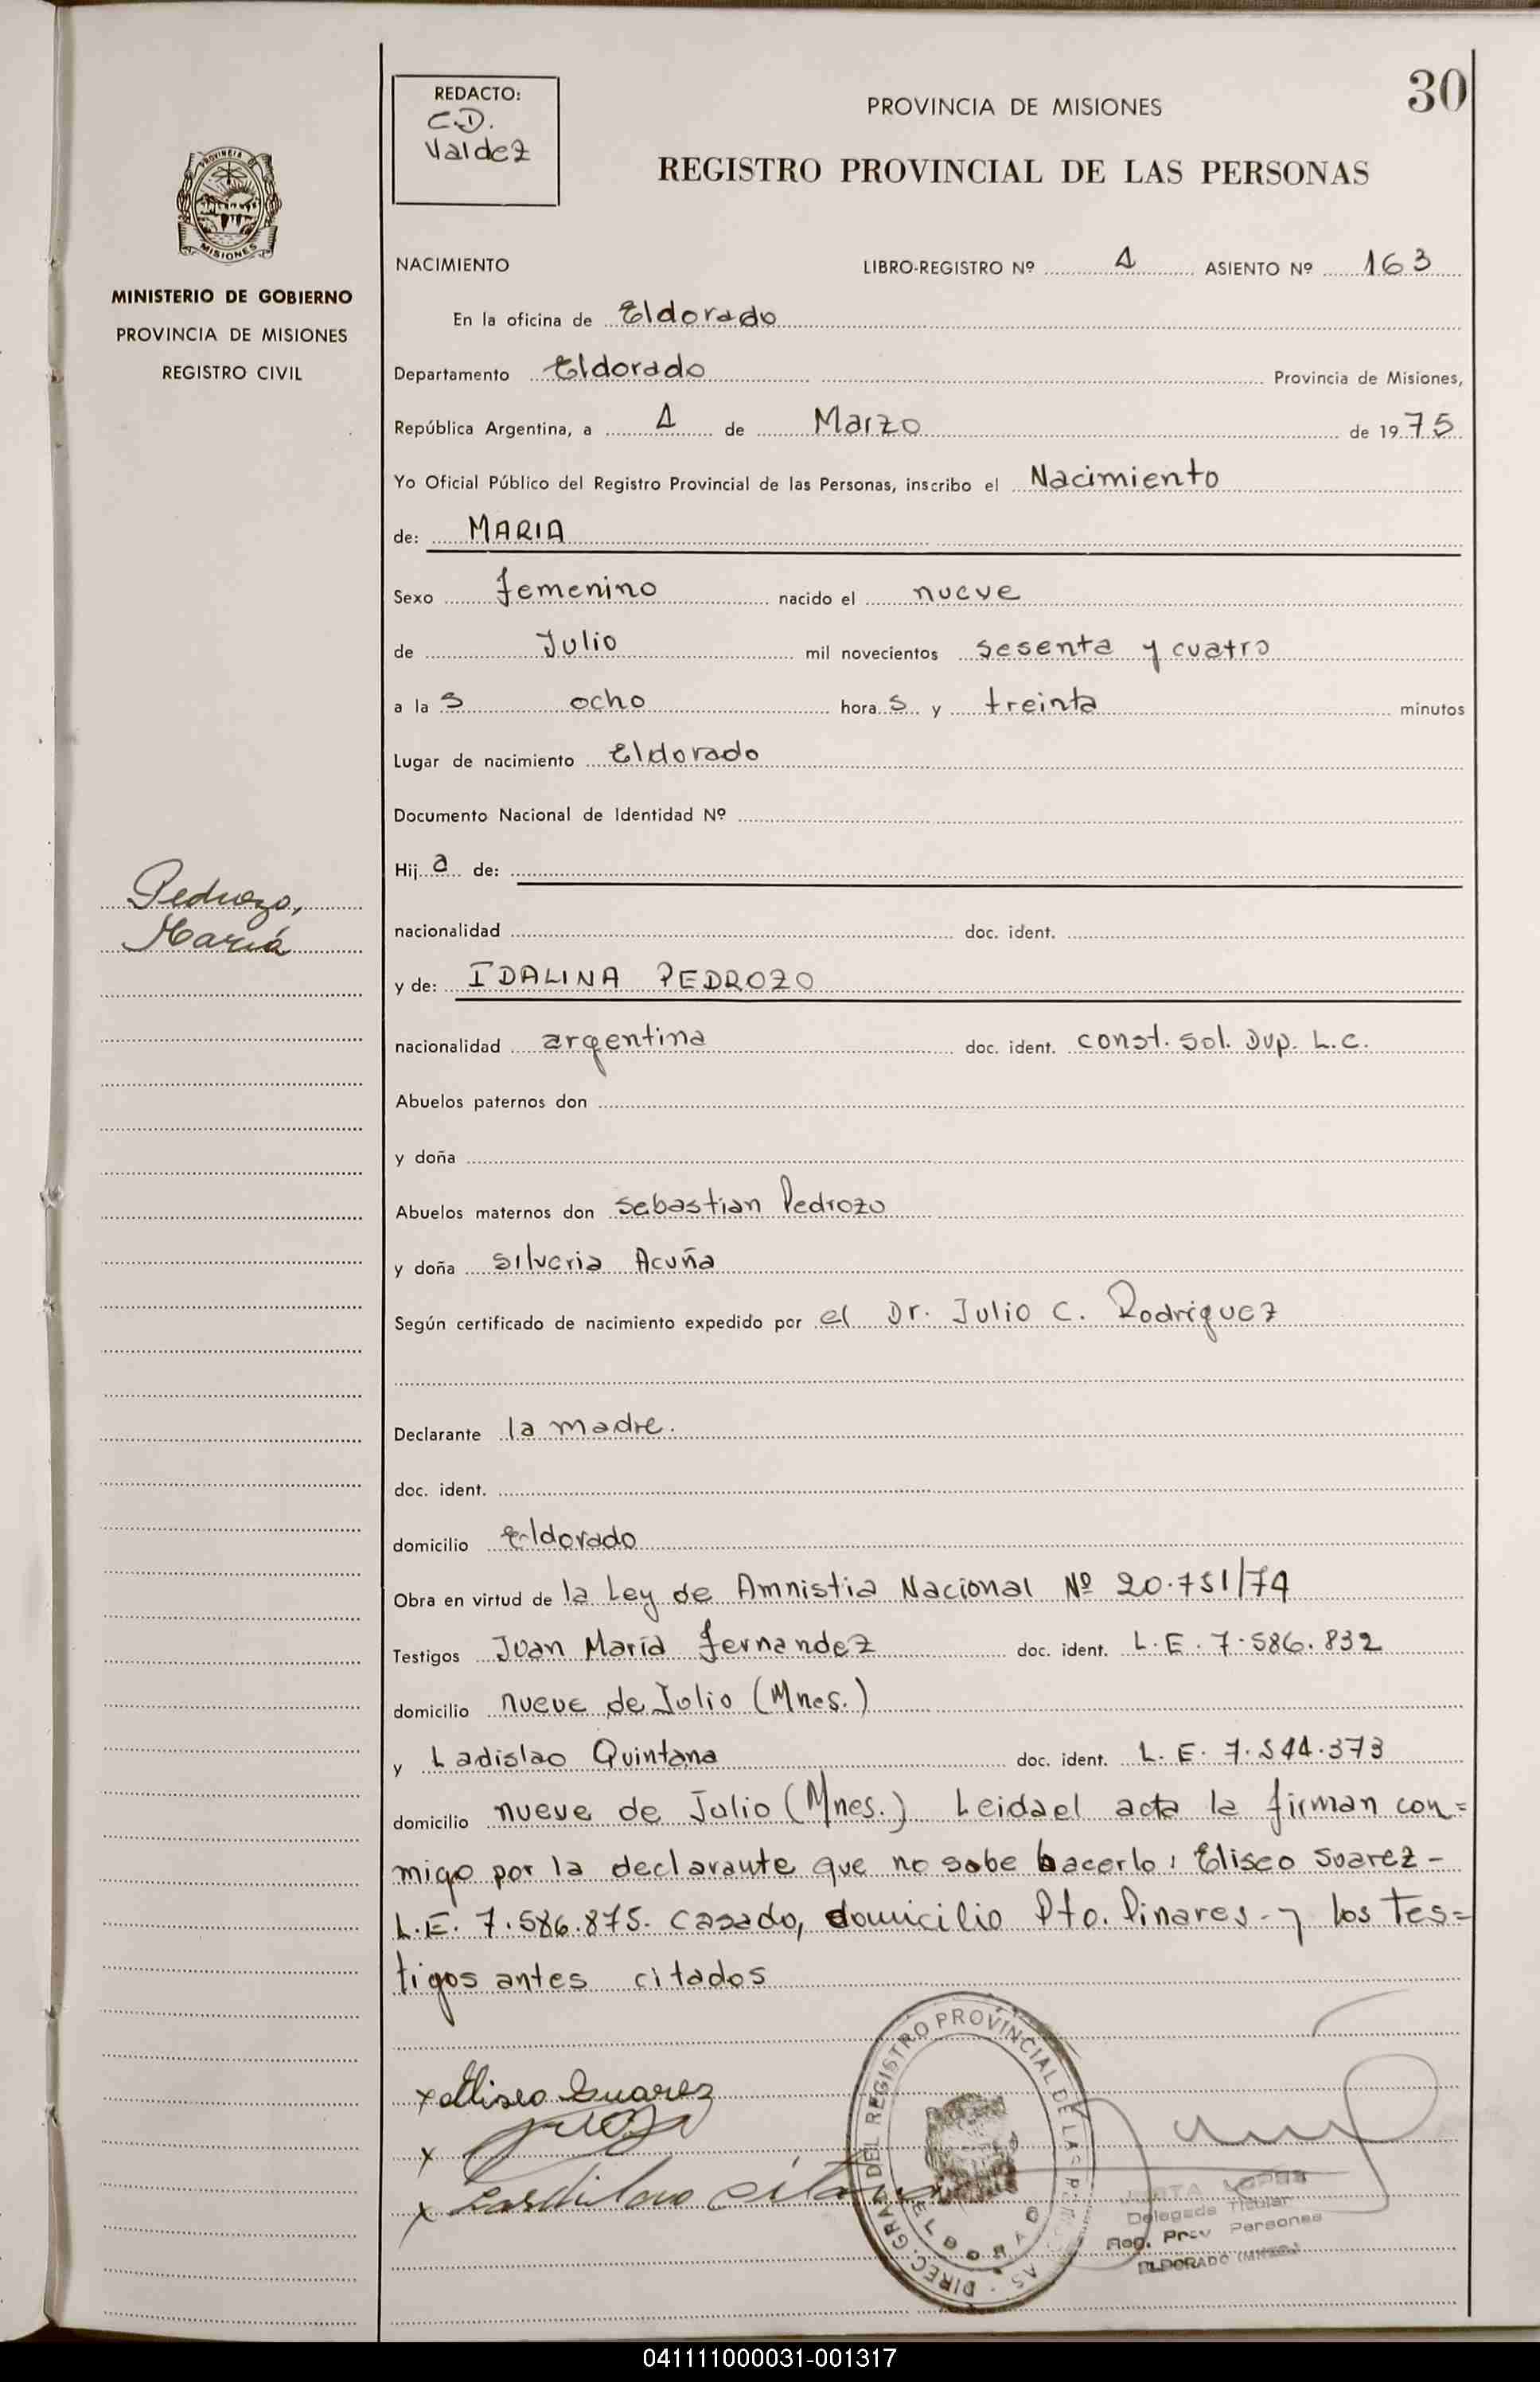 30
REDACTO:
C.D.
Valdez
PROVINCIA DE MISIONES
REGISTRO PROVINCIAL DE LAS PERSONAS
PROVINCIA DE
MISIONES
MINISTERIO DE GOBIERNO
PROVINCIA DE MISIONES
REGISTRO CIVIL
NACIMIENTO LIBRO-REGISTRO Nº 4 ASIENTO Nº 163
En la oficina de Eldorado
Departamento Eldorado Provincia de Misiones,
República Argentina, a 4 de Marzo de 1975
Yo Oficial Público del Registro Provincial de las Personas, inscribo el Nacimiento
de: MARIA
Sexo femenino nacido el nueve
de Julio mil novecientos sesenta y cuatro
a la s ocho hora s y treinta minutos
Lugar de nacimiento Eldorado
Documento Nacional de Identidad Nº
Hij a de:
Pedrozo,
María
nacionalidad doc. ident.
y de: IDALINA PEDROZO
nacionalidad argentina doc. ident. const. sol. Dup. L.C.
Abuelos paternos don
y doña
Abuelos maternos don Sebastian Pedrozo
y doña Silveria Acuña
Según certificado de nacimiento expedido por el Dr. Julio C. Rodriguez
Declarante la madre.
doc. ident.
domicilio Eldorado
Obra en virtud de la Ley de Amnistia Nacional Nº 20.751/74
Testigos Juan María Fernandez doc. ident. L.E. 7.586.832
domicilio nueve de Julio (Mnes.)
y Ladislao Quintana doc. ident. L.E. 7.544.373
domicilio nueve de Julio (Mnes.) Leida el acta la firman con=
migo por la declarante que no sabe hacerlo: Eliseo Suarez -
L.E. 7.586.875. casado, domicilio Pto. Pinares - y los tes=
tigos antes citados
x Eliseo Suarez
x
x
DIREC. GRAL DEL REGISTRO PROVINCIAL DE LAS PERSONAS
ELDORADO
LOPEZ
Delegada Titular
Reg. Prov Personas
ELDORADO (MNES.)
041111000031-001317